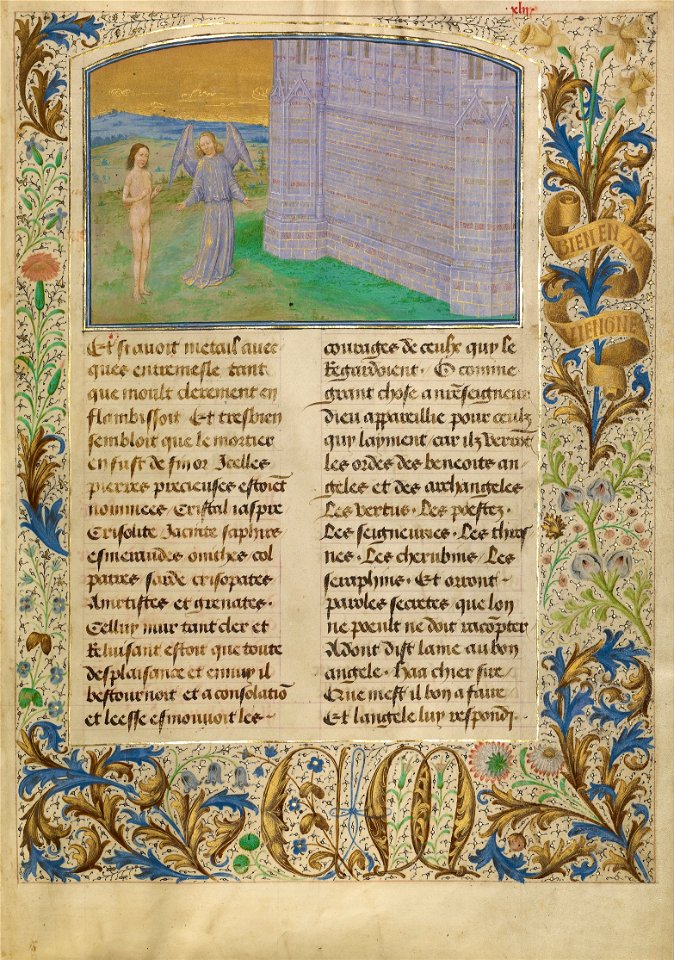 xliii
BIEN EN AD
VIENGNE
Et si avoit metail avec
ques entremesle tant
que moult clerement en
flambissoit Et tresbien
sembloit que le mortier
en fust de fin or Icelles
pierres precieuses estoiēt
nommees Cristal iaspre
Crisolite Jacinte saphirs
esmeraudes onichēs col
patres sarde crisopates
Amatistes et grenates.
Celluy mur tant cler et
Reluisant estoit que toute
desplaisance et ennuy il
bestournoit et a consolatiō
et leesse esmouvoit les
courages de ceulx quy le
Regardoient. O comme
grant chose a nr̄e seigneur
dieu appareillie pour ceulx
quy layment car ilz verrōt
les ordes des benoites an
geles et des archangeles
Les vertus. Les poestez.
Les seigneuries. Les thros
nes. Les cherubins Les
seraphins. Et orront
paroles secretes que lon
ne poeult ne doit racōpter
Adont dist lame au bon
angele. Haa chier sire
Que mest il bon a faire
Et langele luy respondi.
C M